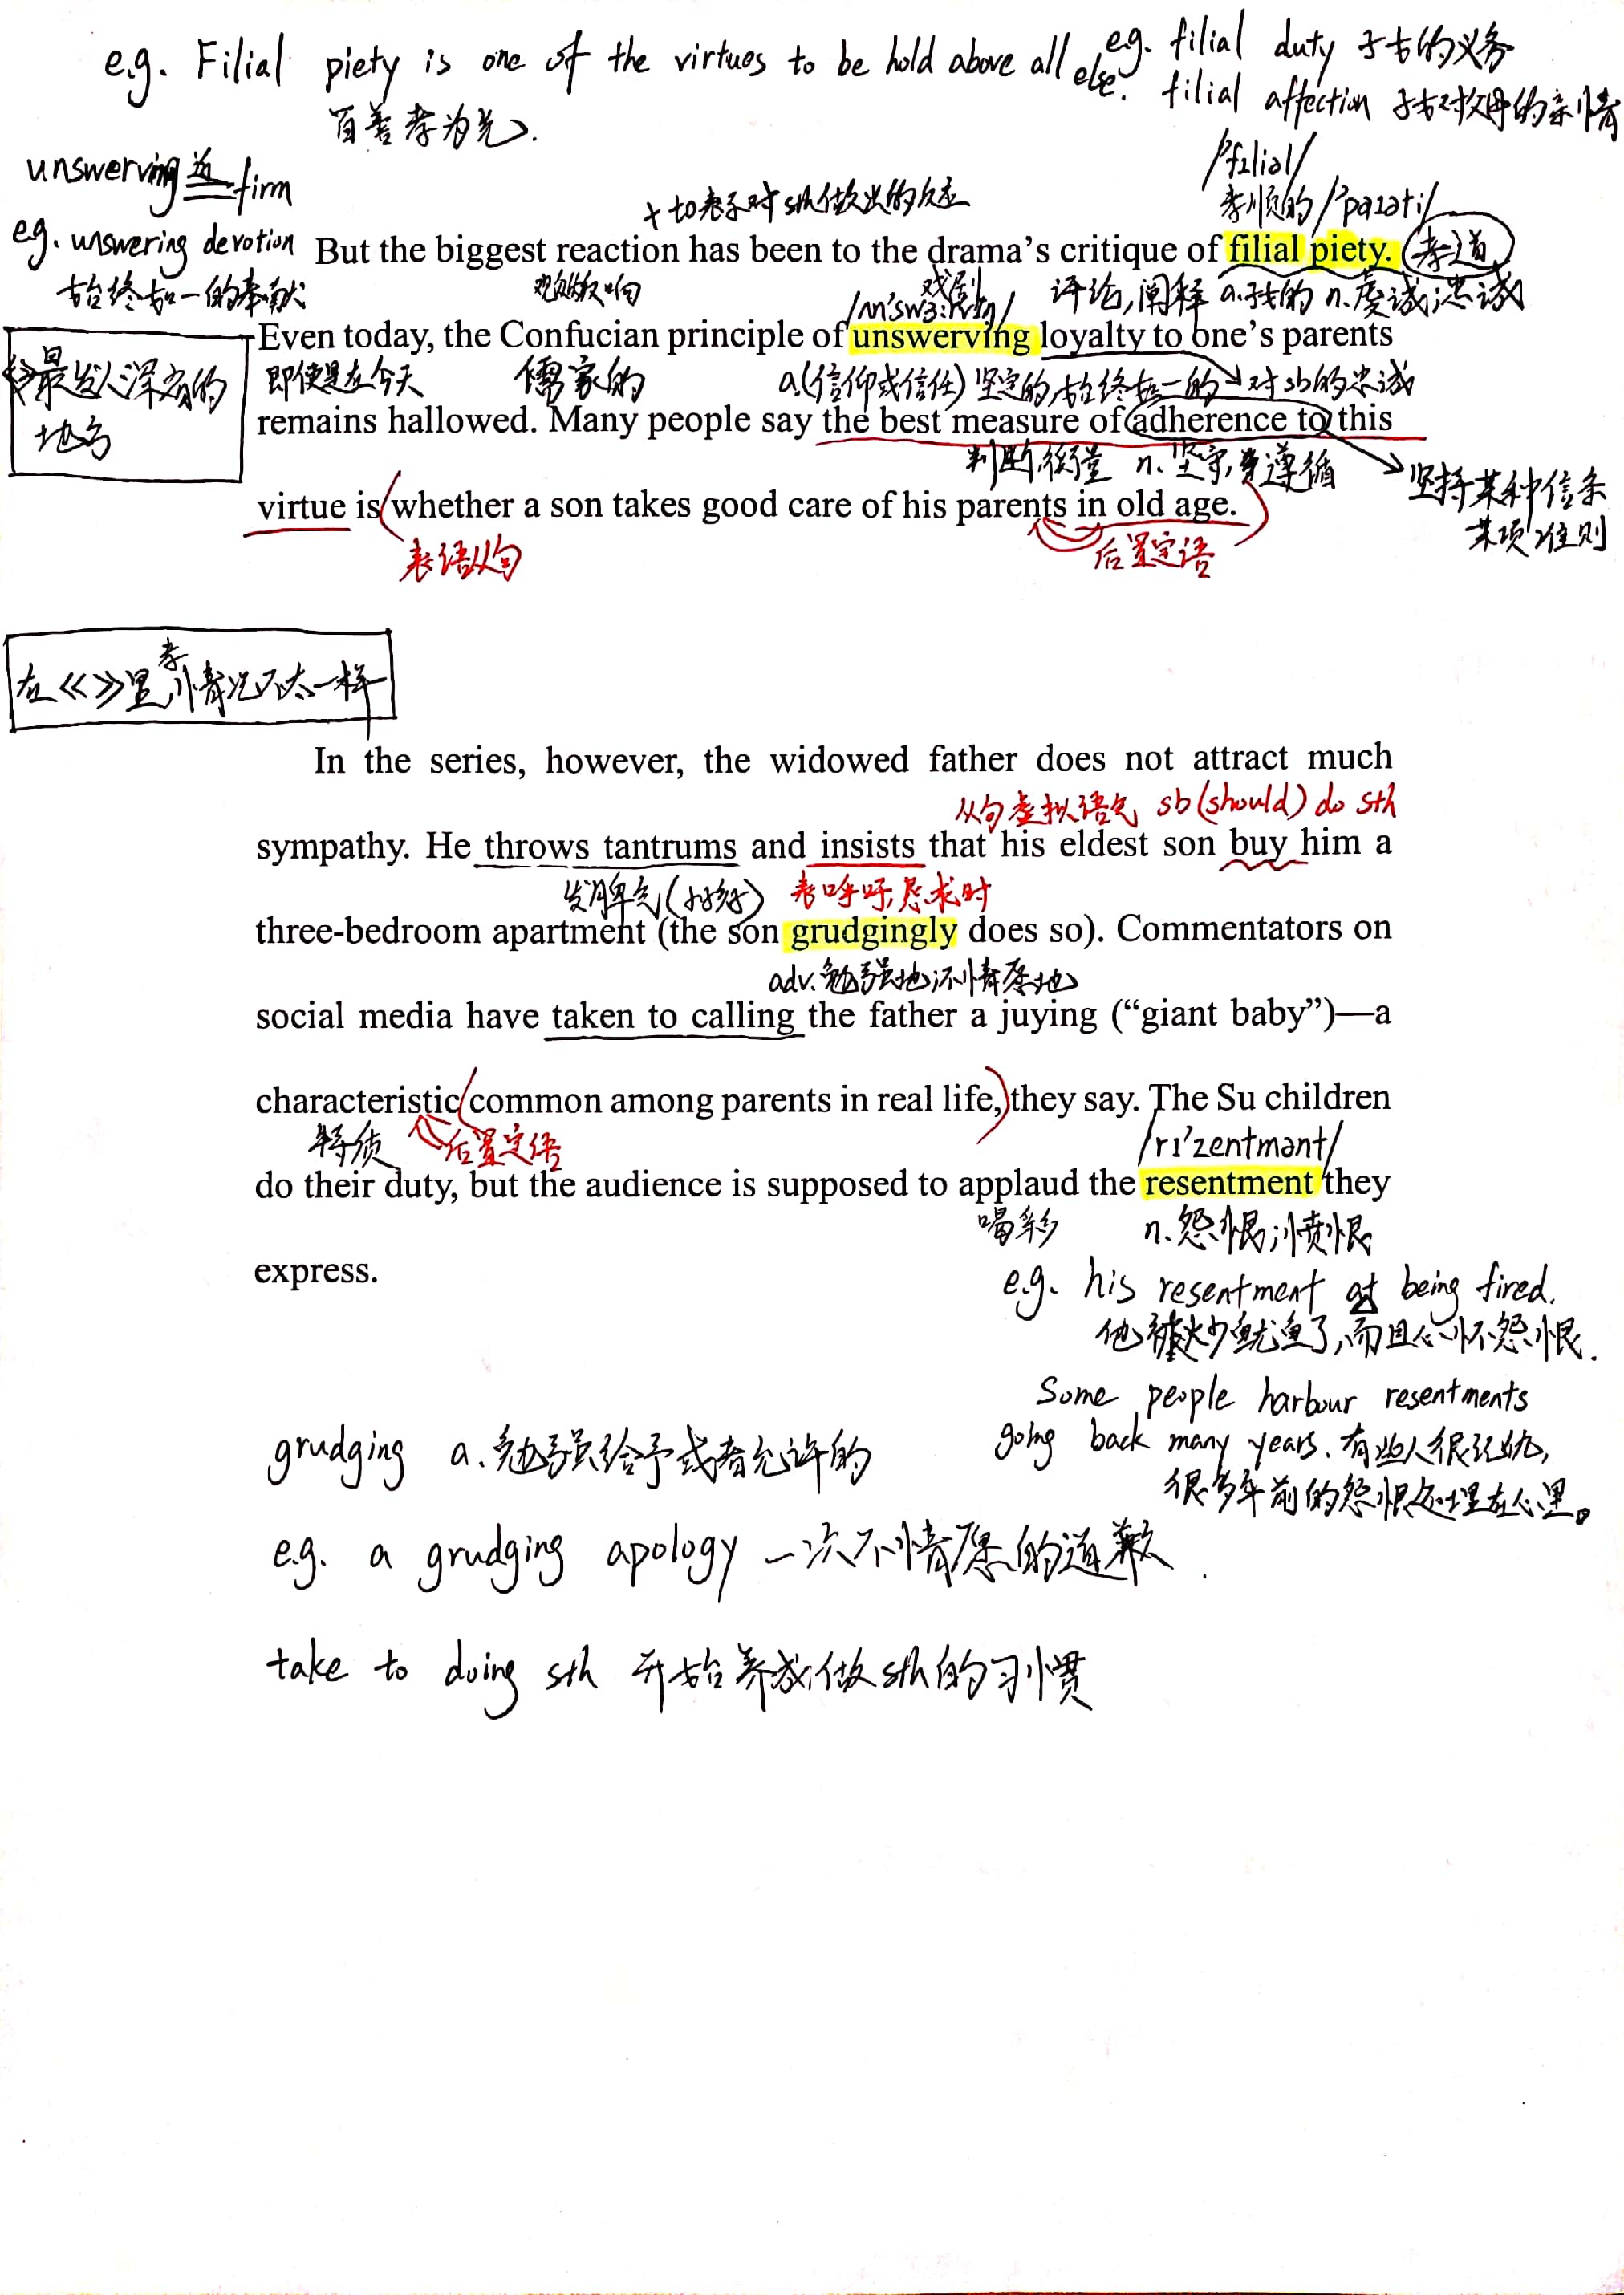 e.g. Filial piety is one of the virtues to be hold above all else.
百善孝为先.
e.g. filial duty 子女的义务
filial affection 子女对父母的亲情
unswerving 近 firm
e.g. unswering devotion
始终如一的奉献
+ to 表示对 sth 做出的反应
/'fɪlial/
孝顺的 /'paɪəti/
But the biggest reaction has been to the drama's critique of filial piety. 孝道
戏剧 评论,阐释 a.子女的 n.虔诚;忠诚
Even today, the Confucian principle of unswerving loyalty to one's parents
《》最发人深省的
地方
即使是在今天 儒家的 a.(信仰或信任)坚定的,始终如一的 对sb的忠诚
remains hallowed. Many people say the best measure of adherence to this
判断,衡量 n.坚守,遵循
坚持某种信条
某项准则
virtue is (whether a son takes good care of his parents in old age.)
表语从句 后置定语
在《》里,孝情况不太一样
In the series, however, the widowed father does not attract much
从句虚拟语气 sb (should) do sth
sympathy. He throws tantrums and insists that his eldest son buy him a
发脾气(好好) 表呼吁,恳求时
three-bedroom apartment (the son grudgingly does so). Commentators on
adv.勉强地;不情愿地
social media have taken to calling the father a juying (“giant baby”)—a
characteristic (common among parents in real life,) they say. The Su children
特质 后置定语 /rɪ'zentmənt/
do their duty, but the audience is supposed to applaud the resentment they
喝彩 n.怨恨;愤恨
express.
e.g. his resentment at being fired.
他被炒鱿鱼了,而且心怀怨恨.
Some people harbour resentments
going back many years. 有些人很记仇,
很多年前的怨恨还埋在心里。
grudging a.勉强给予或者允许的
e.g. a grudging apology 一次不情愿的道歉.
take to doing sth 开始养成做sth的习惯